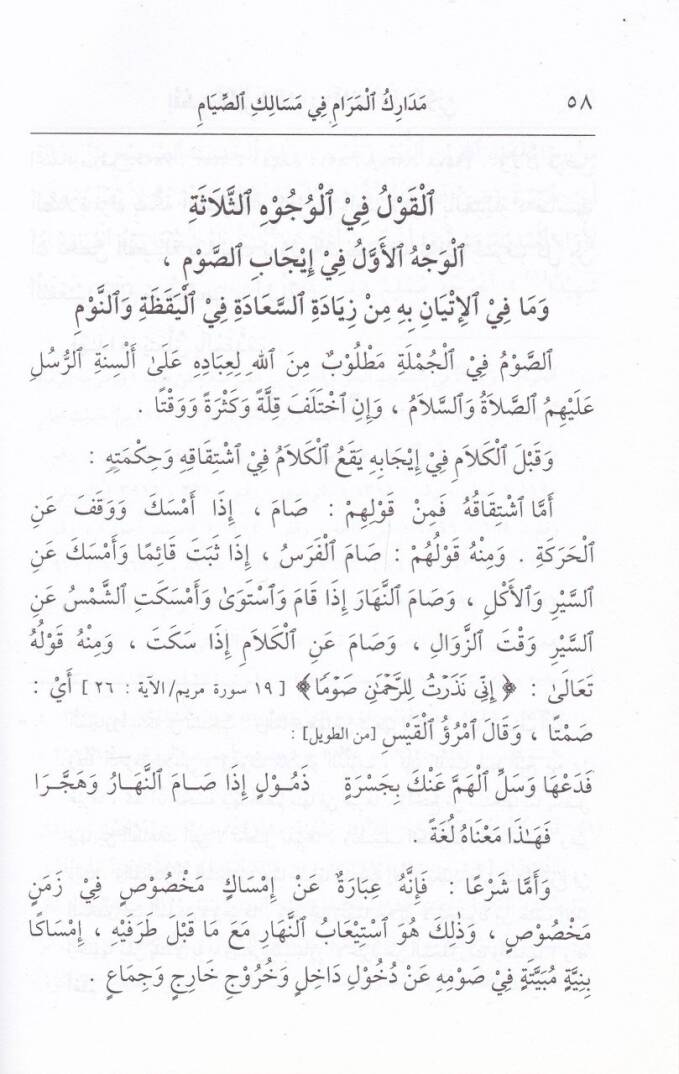 ٥٨ مَدَارِكُ ٱلْمَرَامِ فِي مَسَالِكِ ٱلصِّيَامِ
ٱلْقَوْلُ فِيْ ٱلْوُجُوْهِ ٱلثَّلَاثَةِ
ٱلْوَجْهُ ٱلأَوَّلُ فِيْ إِيْجَابِ ٱلصَّوْمِ ،
وَمَا فِيْ ٱلإِتْيَانِ بِهِ مِنْ زِيَادَةِ ٱلسَّعَادَةِ فِيْ ٱلْيَقَظَةِ وَٱلنَّوْمِ
ٱلصَّوْمُ فِيْ ٱلْجُمْلَةِ مَطْلُوْبٌ مِنَ ٱللهِ لِعِبَادِهِ عَلَىٰ أَلْسِنَةِ ٱلرُّسُلِ
عَلَيْهِمُ ٱلصَّلَاةُ وَٱلسَّلَامُ ، وَإِنِ ٱخْتَلَفَ قِلَّةً وَكَثْرَةً وَوَقْتًا .
وَقَبْلَ ٱلْكَلَامِ فِيْ إِيْجَابِهِ يَقَعُ ٱلْكَلَامُ فِيْ ٱشْتِقَاقِهِ وَحِكْمَتِهِ :
أَمَّا ٱشْتِقَاقُهُ فَمِنْ قَوْلِهِمْ : صَامَ ، إِذَا أَمْسَكَ وَوَقَفَ عَنِ
ٱلْحَرَكَةِ . وَمِنْهُ قَوْلُهُمْ : صَامَ ٱلْفَرَسُ ، إِذَا ثَبَتَ قَائِمًا وَأَمْسَكَ عَنِ
ٱلسَّيْرِ وَٱلأَكْلِ ، وَصَامَ ٱلنَّهَارَ إِذَا قَامَ وَٱسْتَوَىٰ وَأَمْسَكَتِ ٱلشَّمْسُ عَنِ
ٱلسَّيْرِ وَقْتَ ٱلزَّوَالِ ، وَصَامَ عَنِ ٱلْكَلَامِ إِذَا سَكَتَ ، وَمِنْهُ قَوْلُهُ
تَعَالَىٰ : ﴿ إِنِّي نَذَرْتُ لِلرَّحْمَٰنِ صَوْمًا ﴾ [ ١٩ سورة مريم/الآية : ٢٦ ] أَيْ :
صَمْتًا ، وَقَالَ ٱمْرُؤُ ٱلْقَيْسِ [من الطويل] :
فَدَعْهَا وَسَلِّ ٱلْهَمَّ عَنْكَ بِجَسْرَةٍ ذَمُوْلٍ إِذَا صَامَ ٱلنَّهَارُ وَهَجَّرَا
فَهَـٰذَا مَعْنَاهُ لُغَةً .
وَأَمَّا شَرْعًا : فَإِنَّهُ عِبَارَةٌ عَنْ إِمْسَاكٍ مَخْصُوْصٍ فِي زَمَنٍ
مَخْصُوْصٍ ، وَذَٰلِكَ هُوَ ٱسْتِيْعَابُ ٱلنَّهَارِ مَعَ مَا قَبْلَ طَرَفَيْهِ ، إِمْسَاكًا
بِنِيَّةٍ مُبَيَّتَةٍ فِيْ صَوْمِهِ عَنْ دُخُوْلِ دَاخِلٍ وَخُرُوْجِ خَارِجٍ وَجِمَاعٍ .